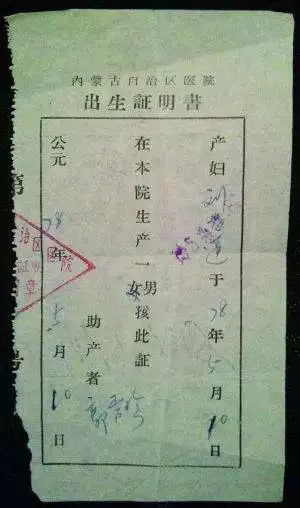 内蒙古自治区医院
出生証明書
产妇 刘 莲 于 78 年 5 月 10 日
在本院生产一男女孩此証
助产者 郭
公元 78 年 5 月 10 日
第
治区医院
証明
章